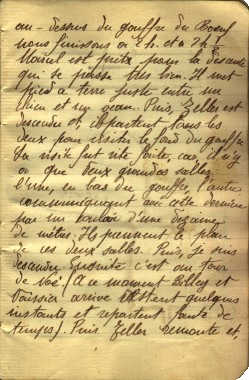 au-dessus du gouffre du Boeuf
nous finissons à 2 h. et à 2 h ½
Marcel est prêt pour la descente
qui se passe très bien. Il met
pied à terre juste entre un
chien et un veau. Puis, Zeller est
descendu et, ils partent tous les
deux pour visiter le fond du gouffre
La visite fut vite faite, car il n'y
a que deux grandes salles
L'une, en bas du gouffre, l'autre
communiquant avec cette dernière
par un couloir d'une dizaine
de mètres. Ils prennent le plan
de ces deux salles. Puis, je suis
descendu. Ensuite c'est au tour
de Voé. (A ce moment Billey et
Vaissier arrive restent quelques
instants et repartent faute de
temps). Puis Zeller remonte et,